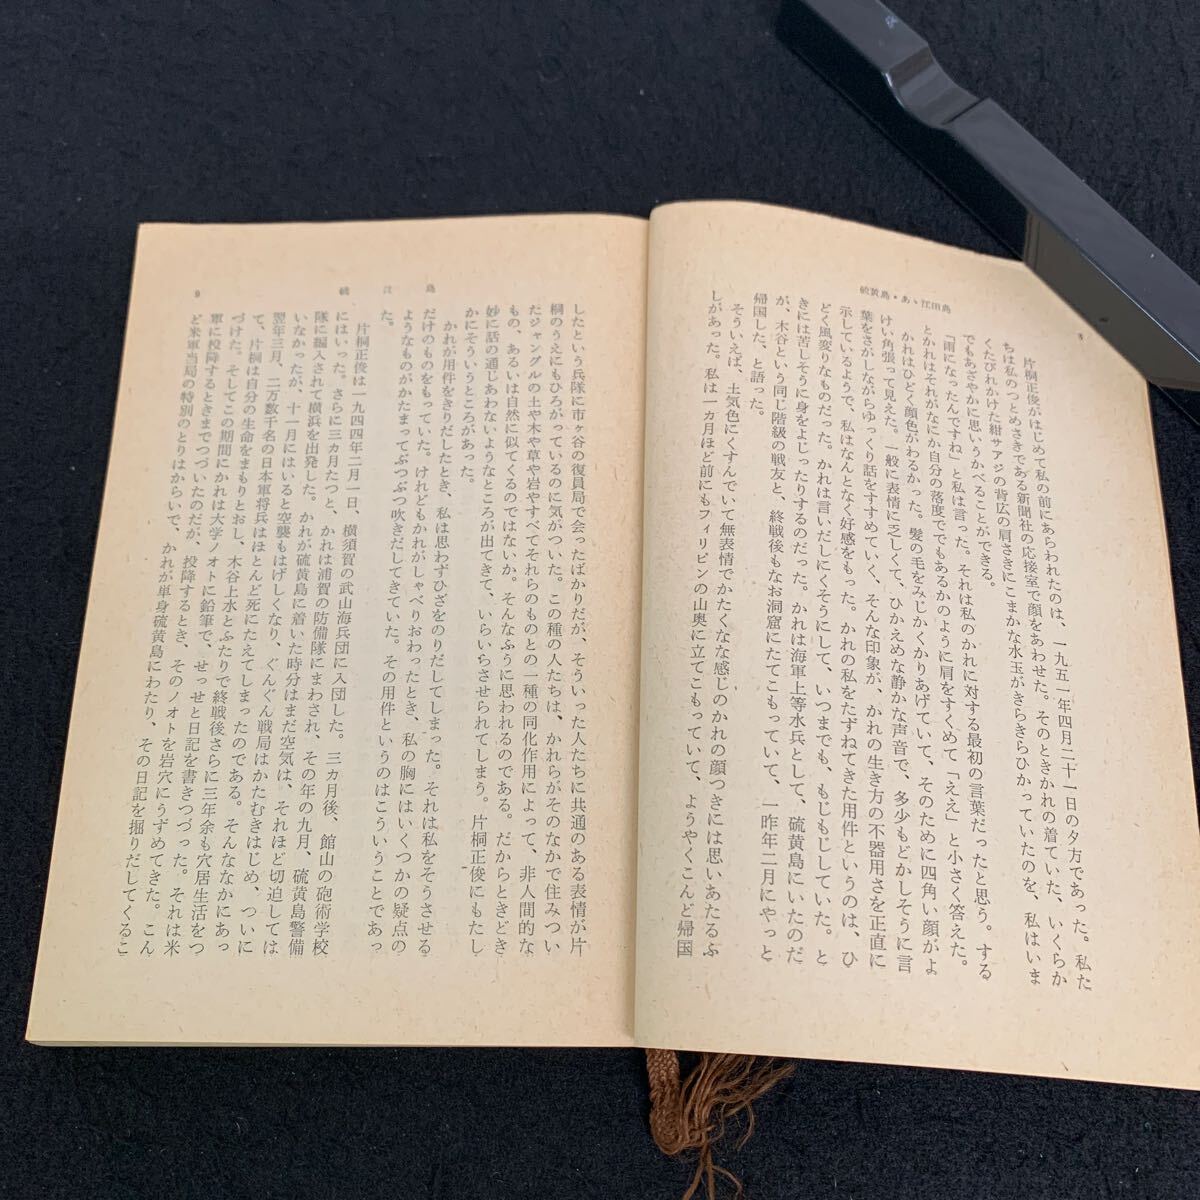 硫黄島・あゝ江田島
8
片桐正俊がはじめて私の前にあらわれたのは、一九五一年四月二十一日の夕方であった。私た
ちは私のつとめさきである新聞社の応接室で顔をあわせた。そのときかれの着ていた、いくらか
くたびれかけた紺サアジの背広の肩さきにこまかな水玉がきらきらひかっていたのを、私はいま
でもあざやかに思いうかべることができる。
「雨になったんですね」と私は言った。それは私のかれに対する最初の言葉だったと思う。する
とかれはそれがなにか自分の落度ででもあるかのように肩をすくめて「ええ」と小さく答えた。
かれはひどく顔色がわるかった。髪の毛をみじかくかりあげていて、そのために四角い顔がよ
けい角張って見えた。一般に表情に乏しくて、ひかえめな静かな声音で、多少もどかしそうに言
葉をさがしながらゆっくり話をすすめていく、そんな印象が、かれの生き方の不器用さを正直に
示しているようで、私はなんとなく好感をもった。かれの私をたずねてきた用件というのは、ひ
どく風変りなものだった。かれは言いだしにくそうにして、いつまでも、もじもじしていた。と
きには苦しそうに身をよじったりするのだった。かれは海軍上等水兵として、硫黄島にいたのだ
が、木谷という同じ階級の戦友と、終戦後もなお洞窟にたてこもっていて、一昨年二月にやっと
帰国した、と語った。
そういえば、土気色にくすんでいて無表情でかたくなな感じのかれの顔つきには思いあたるふ
しがあった。私は一カ月ほど前にもフィリピンの山奥に立てこもっていて、ようやくこんど帰国
硫黄島
9
したという兵隊に市ヶ谷の復員局で会ったばかりだが、そういった人たちに共通のある表情が片
桐のうえにもひろがっているのに気がついた。この種の人たちは、かれらがそのなかで住みつい
たジャングルの土や木や草や岩やすべてそれらのものとの一種の同化作用によって、非人間的な
もの、あるいは自然に似てくるのではないか。そんなふうに思われるのである。だからときどき
妙に話の通じあわないようなところが出てきて、いらいらさせられてしまう。片桐正俊にもたし
かにそういうところがあった。
かれが用件をきりだしたとき、私は思わずひざをのりだしてしまった。それは私をそうさせる
だけのものをもっていた。けれどもかれがしゃべりおわったとき、私の胸にはいくつかの疑点の
ようなものがかたまってぶつぶつ吹きだしてきていた。その用件というのはこういうことであっ
た。
片桐正俊は一九四四年二月一日、横須賀の武山海兵団に入団した。三カ月後、館山の砲術学校
にはいった。さらに三カ月たつと、かれは浦賀の防備隊にまわされ、その年の九月、硫黄島警備
隊に編入されて横浜を出発した。かれが硫黄島に着いた時分はまだ空気は、それほど切迫しては
いなかったが、十一月にはいると空襲もはげしくなり、ぐんぐん戦局はかたむきはじめ、ついに
翌年三月、二万数千名の日本軍将兵はほとんど死にたえてしまったのである。そんななかにあっ
て、片桐は自分の生命をまもりとおし、木谷上水とふたりで終戦後さらに三年余も穴居生活をつ
づけた。そしてこの期間にかれは大学ノオトに鉛筆で、せっせと日記を書きつづった。それは米
軍に投降するときまでつづいたのだが、投降するとき、そのノオトを岩穴にうずめてきた。こん
ど米軍当局の特別のとりはからいで、かれが単身硫黄島にわたり、その日記を掘りだしてくるこ